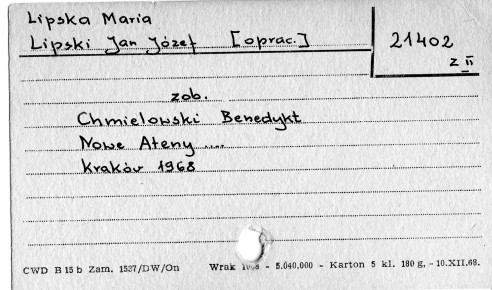 Lipska Maria
Lipski Jan Józef [oprac.]
21402
z II
zob.
Chmielowski Benedykt
Nowe Ateny ....
Kraków 1968
CWD B 15 b Zam. 1537/DW/On Wrak - 5.040.000 - Karton 5 kl. 180 g, - 10.XII.68.